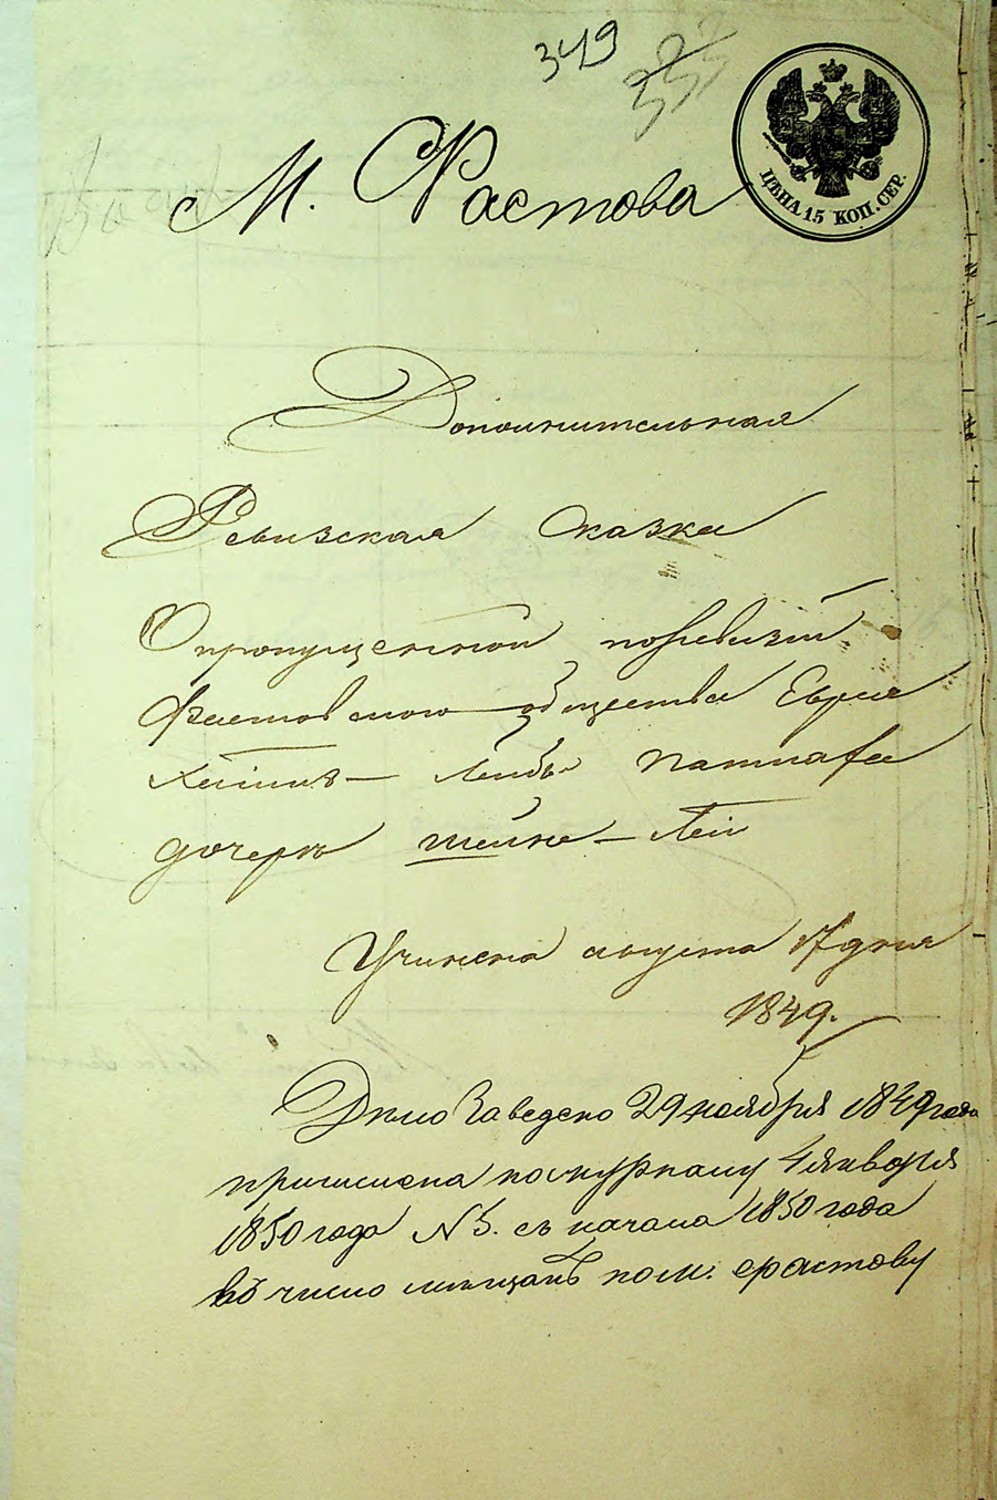 349
М. Фастова
ЦѢНА 15 КОП. СЕР.
Дополнительная
Ревизская Сказка
О пропущенной по ревизіи
Фастовского общества Еврея
Лейбы
дочери Шейне-Леи
Учинена августа 17 дня
1849.
Дело Заведено 29 ноября 1849 года
причислена по журналу 4 января
1850 года N 5. съ начала 1850 года
въ число мещанъ по м. Фастову